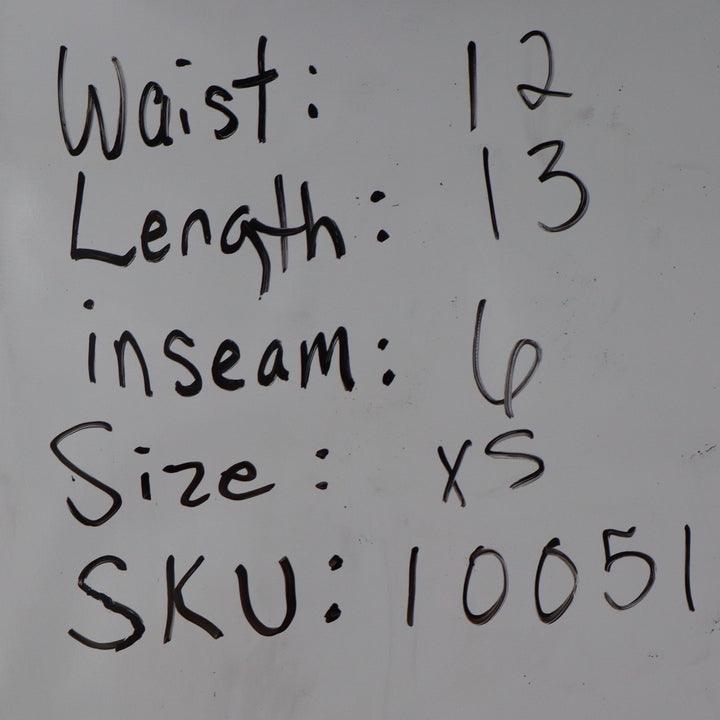 Waist: 12
Length: 13
inseam: 6
Size: XS
SKU: 10051